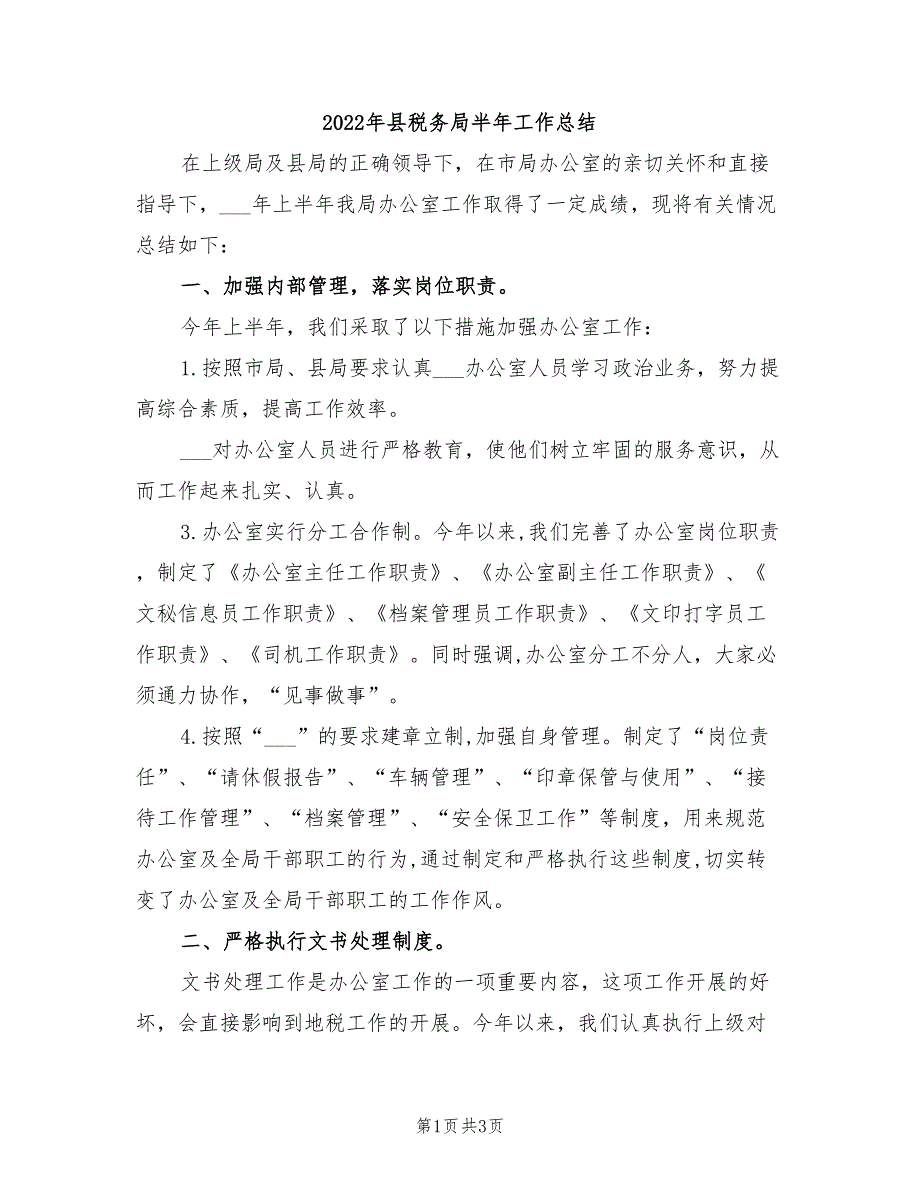 2022年县税务局半年工作总结
在上级局及县局的正确领导下，在市局办公室的亲切关怀和直接
指导下，___年上半年我局办公室工作取得了一定成绩，现将有关情况
总结如下：
一、加强内部管理，落实岗位职责。
今年上半年，我们采取了以下措施加强办公室工作：
1.按照市局、县局要求认真___办公室人员学习政治业务，努力提
高综合素质，提高工作效率。
___对办公室人员进行严格教育，使他们树立牢固的服务意识，从
而工作起来扎实、认真。
3.办公室实行分工合作制。今年以来,我们完善了办公室岗位职责
，制定了《办公室主任工作职责》、《办公室副主任工作职责》、《
文秘信息员工作职责》、《档案管理员工作职责》、《文印打字员工
作职责》、《司机工作职责》。同时强调,办公室分工不分人，大家必
须通力协作，“见事做事”。
4.按照“___”的要求建章立制,加强自身管理。制定了“岗位责
任”、“请休假报告”、“车辆管理”、“印章保管与使用”、“接
待工作管理”、“档案管理”、“安全保卫工作”等制度，用来规范
办公室及全局干部职工的行为,通过制定和严格执行这些制度,切实转
变了办公室及全局干部职工的工作作风。
二、严格执行文书处理制度。
文书处理工作是办公室工作的一项重要内容，这项工作开展的好
坏，会直接影响到地税工作的开展。今年以来，我们认真执行上级对
第1页共3页